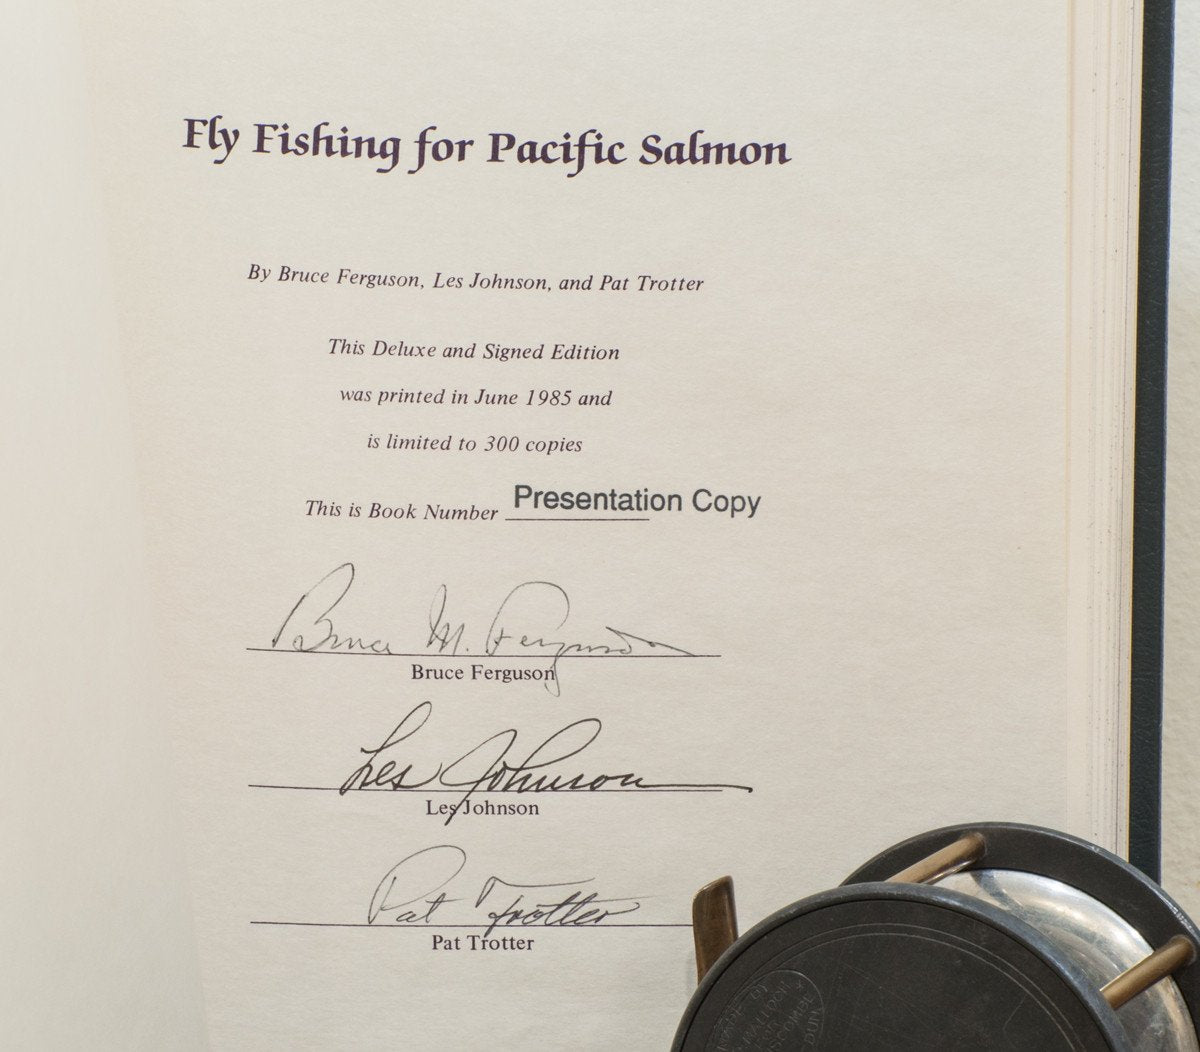 Fly Fishing for Pacific Salmon
By Bruce Ferguson, Les Johnson, and Pat Trotter
This Deluxe and Signed Edition
was printed in June 1985 and
is limited to 300 copies
This is Book Number Presentation Copy
Bruce M. Ferguson
Bruce Ferguson
Les Johnson
Les Johnson
Pat Trotter
Pat Trotter
MADE BY
DUNN